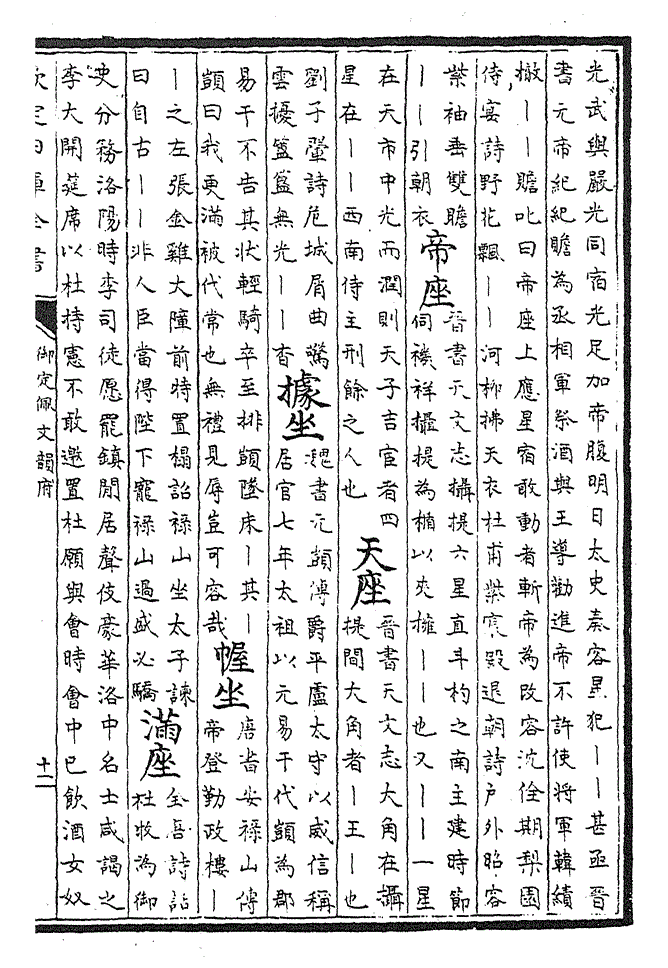 光武與嚴光同宿光足加帝腹明日太史奏客星犯丨丨甚亟晉
書元帝紀紀瞻為丞相軍祭酒與王導勸進帝不許使將軍韓績
撤丨丨瞻叱曰帝座上應星宿敢動者斬帝為改容沈佺期梨園
侍宴詩野花飄丨丨河柳拂天衣杜甫紫宸殿退朝詩户外昭容
紫袖垂雙瞻
丨丨引朝衣
帝座
晉書天文志攝提六星直斗杓之南主建時節
伺禨祥攝提為楯以夾擁丨丨也又丨丨一星
在天市中光而潤則天子吉宦者四
星在丨丨西南侍主刑餘之人也
天座
晉書天文志大角在攝
提間大角者丨王丨也
劉子翬詩危城屑曲驚
雲擾簋簋無光丨丨杳
據坐
魏書元顗傳爵平盧太守以威信稱
居官七年太祖以元易干代顗為郡
易干不告其狀輕騎卒至排顗墜床丨其丨
顗曰我更滿被代常也無禮見辱豈可容哉
幄坐
唐書安禄山傳
帝登勤政樓丨
丨之左張金雞大障前特置榻詔祿山坐太子諫
曰自古丨丨非人臣當得陛下寵祿山過盛必驕
滿座
全唐詩話
杜牧為御
史分務洛陽時李司徒愿罷鎮閒居聲伎豪華洛中名士咸謁之
李大開筵席以杜持憲不敢邀置杜願與會時會中已飲酒女奴
欽定四庫全書
御定佩文韻府
十二